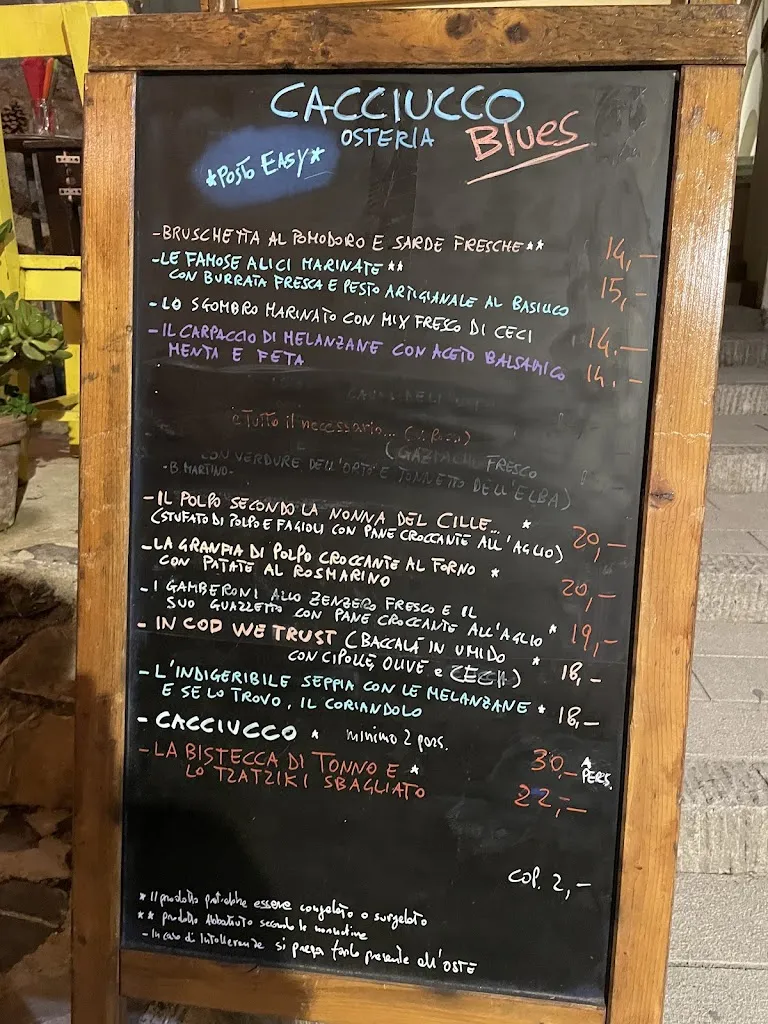 CACCIUCCO
OSTERIA
Blues
*POSTO EASY*
-BRUSCHETTA AL POMODORO E SARDE FRESCHE** 14,-
-LE FAMOSE ALICI MARINATE**
CON BURRATA FRESCA E PESTO ARTIGIANALE AL BASILICO 15,-
-LO SGOMBRO MARINATO CON MIX FRESCO DI CECI 14.-
-IL CARPACCIO DI MELANZANE CON ACETO BALSAMICO 14.-
MENTA E FETA
e tutto il necessario...
FRESCO
CON VERDURE DELL'ORTO E TONNETTO DELL'ELBA)
-B. MARTINO-
-IL POLPO SECONDO LA NONNA DEL CILLE... *
(STUFATO DI POLPO E FAGIOLI CON PANE CROCCANTE ALL'AGLIO) 20,-
-LA GRANFIA DI POLPO CROCCANTE AL FORNO *
CON PATATE AL ROSMARINO 20,-
-I GAMBERONI ALLO ZENZERO FRESCO E IL
SUO GUAZZETTO CON PANE CROCCANTE ALL'AGLIO * 19,-
-IN COD WE TRUST (BACCALÀ IN UMIDO * 18,-
CON CIPOLLE, OLIVE e CECI)
-L'INDIGERIBILE SEPPIA CON LE MELANZANE * 18,-
E SE LO TROVO, IL CORIANDOLO
-CACCIUCCO * minimo 2 pers. 30.- A PERS.
-LA BISTECCA DI TONNO E *
LO TZATZIKI SBAGLIATO 22,-
COP. 2,-
* Il prodotto potrebbe essere congelato o surgelato
** prodotto Abbattuto secondo le normative
-In caso di Intolleranze si prega farlo presente all'OSTE